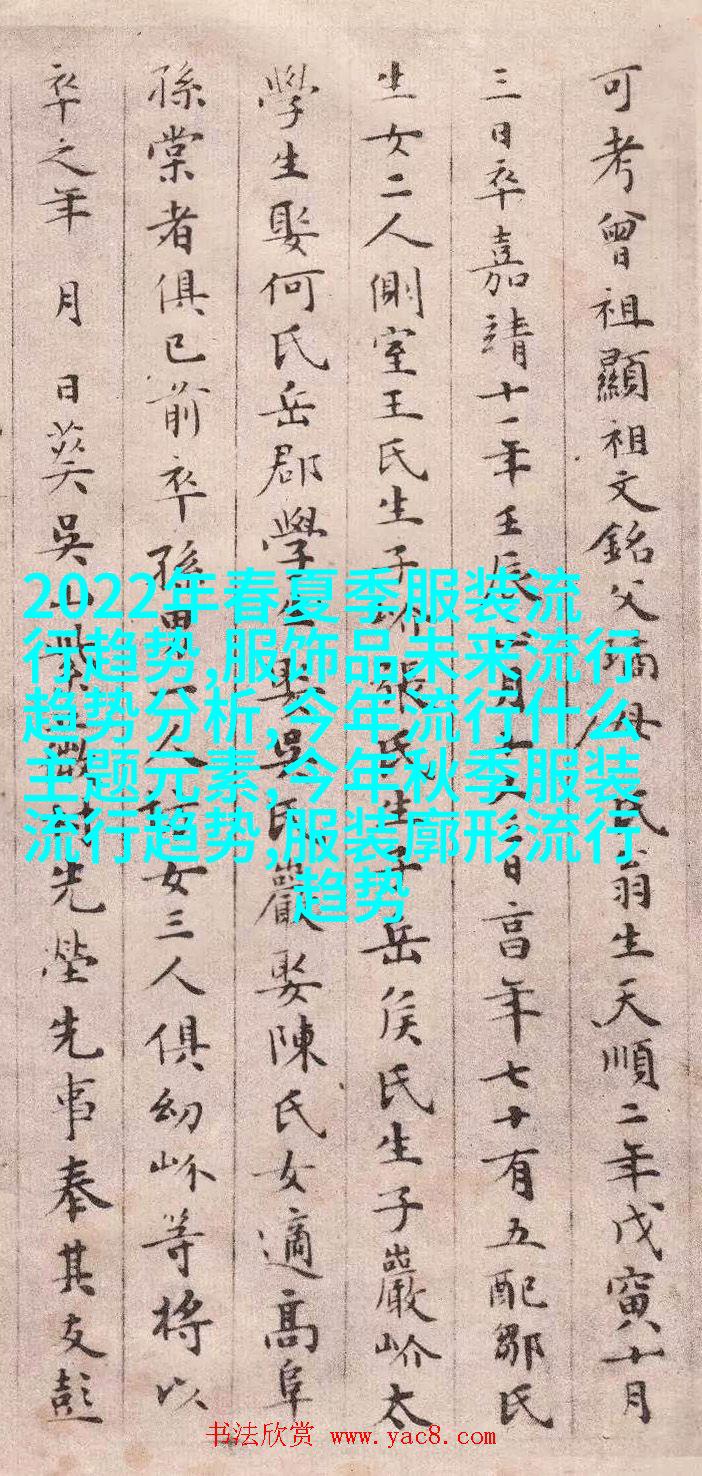 可考曾祖顯祖文銘父璚母氏翁生天順二年戊寅十月
三日卒嘉靖十一年壬辰月十日高年七十有五配鄒氏
生女二人側室王氏生子岎張氏生子岳侯氏生子巖岎太
學生娶何氏岳郡學生娶吳氏巖娶陳氏女適高阜
孫棠者俱已前卒孫男人女三人俱幼岎等將以
卒之年 月 日葬吳山先塋先事奉其友彭
2022年春夏季服装流
行趋势,服饰品未来流行
趋势分析,今年流行什么
主题元素,今年秋季服装
流行趋势,服装廓形流行
趋势
书法欣赏 www.yac8.com